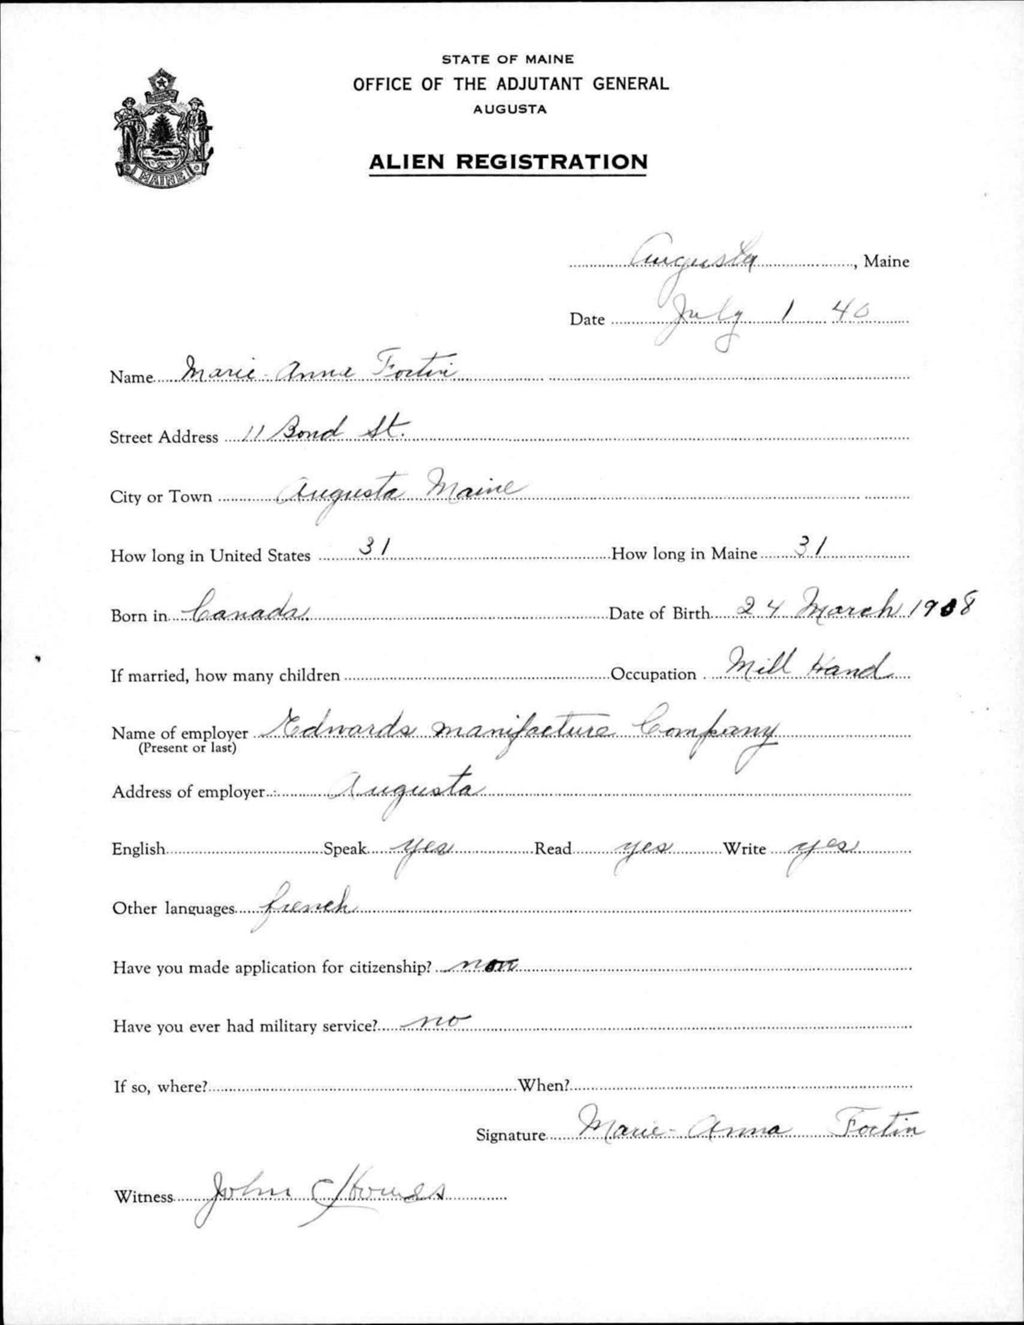 STATE OF MAINE
OFFICE OF THE ADJUTANT GENERAL
AUGUSTA
ALIEN REGISTRATION
MAINE
Augusta, Maine
Date July 1 40
Name Marie-Anna Fortin
Street Address 11 Bond St.
City or Town Augusta Maine
How long in United States 31 How long in Maine 31
Born in Canada Date of Birth 24 March 1908
If married, how many children Occupation Mill Hand
Name of employer Edwards manifacture Company
(Present or last)
Address of employer Augusta
English Speak yes Read yes Write yes
Other languages french
Have you made application for citizenship? non
Have you ever had military service? no
If so, where? When?
Signature Marie-Anna Fortin
Witness John C